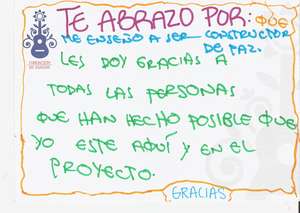 TE ABRAZO POR: QUE
ME ENSEÑO A SER CONSTRUCTOR
DE PAZ.
LES DOY GRACIAS A
TODAS LAS PERSONAS
QUE HAN HECHO POSIBLE QUE
YO ESTE AQUÍ Y EN EL
PROYECTO.
GRACIAS